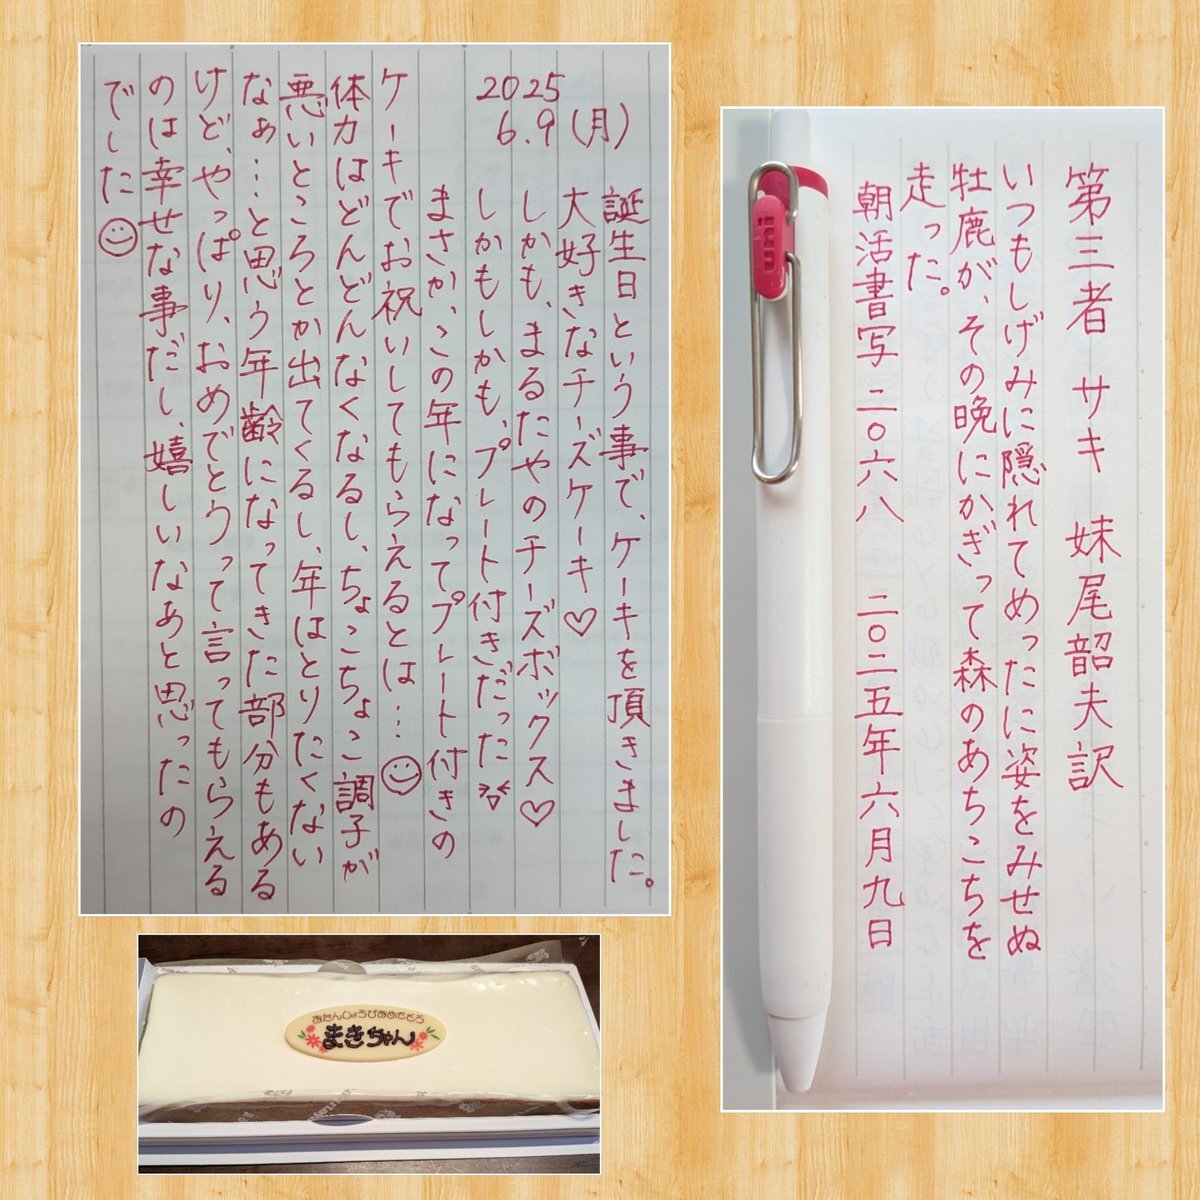 2025
6.9(月)
誕生日という事で、ケーキを頂きました。
大好きなチーズケーキ♡
しかも、まるたやのチーズボックス♡
しかもしかも、プレート付きだった
まさか、この年になってプレート付きの
ケーキでお祝いしてもらえるとは…☺
体力はどんどんなくなるし、ちょこちょこ調子が
悪いところとか出てくるし、年はとりたくない
なぁ…と思う年齢になってきた部分もある
けど、やっぱり、おめでとうって言ってもらえる
のは幸せな事だし、嬉しいなあと思ったの
でした☺
第三者 サキ 妹尾韶夫訳
いつもしげみに隠れてめったに姿をみせぬ
牡鹿が、その晩にかぎって森のあちこちを
走った。
朝活書写二〇六八 二〇二五年六月九日
uni
おたんじょうびおめでとう
まきちゃん